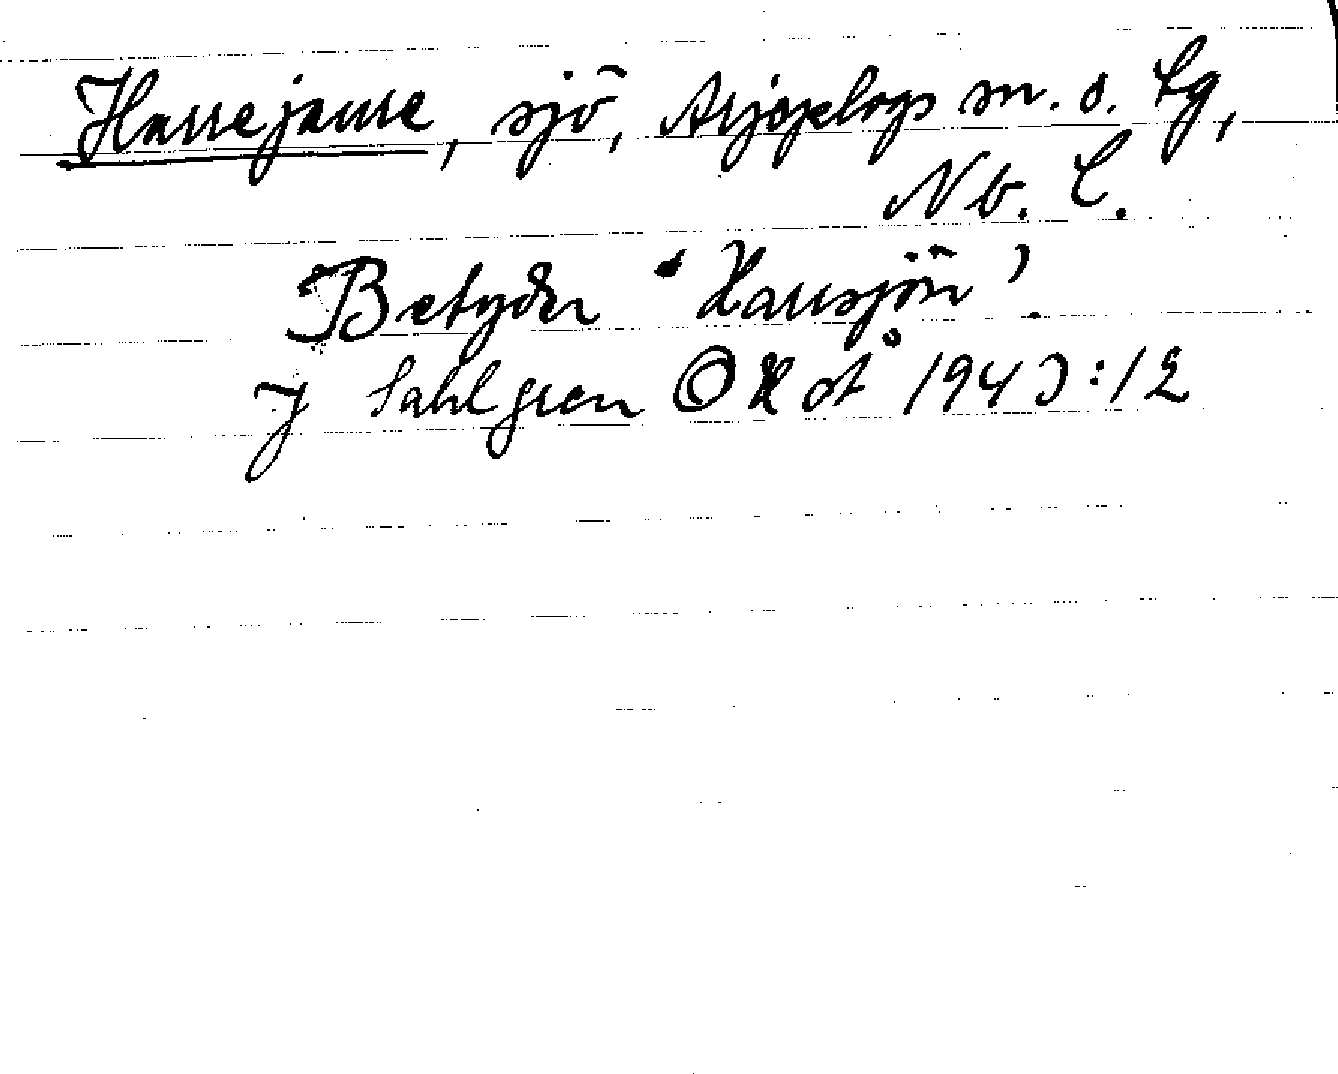 Harrejaure, sjö, Arjeplogs sn. o. lg,
Nb. L.
Betyder 'Harrsjön'.
J Sahlgren OK ot 1943:12